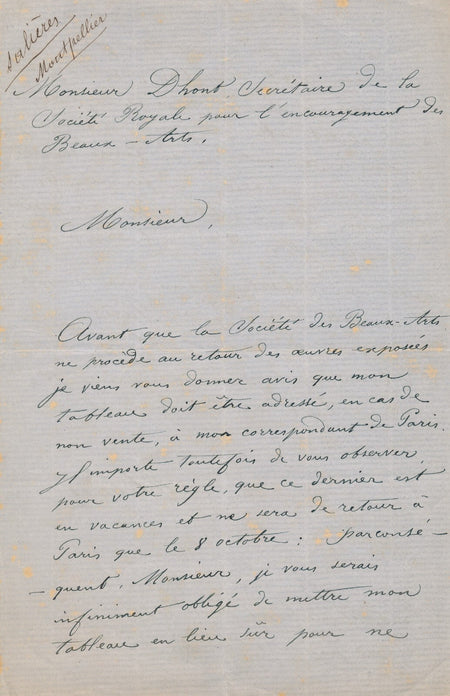 Salières
Montpellier
Monsieur Dhont Secrétaire de la
Société Royale pour l'encouragement des
Beaux-Arts.
Monsieur,
Avant que la Société des Beaux-Arts
ne procède au retour des œuvres exposées
je viens vous donner avis que mon
tableau doit être adressé, en cas de
non vente, à mon correspondant de Paris.
Il importe toutefois de vous observer,
pour votre règle, que ce dernier est
en vacances et ne sera de retour à
Paris que le 8 octobre : parconsé-
-quent, Monsieur, je vous serais
infiniment obligé de mettre mon
tableau en lieu sûr pour ne